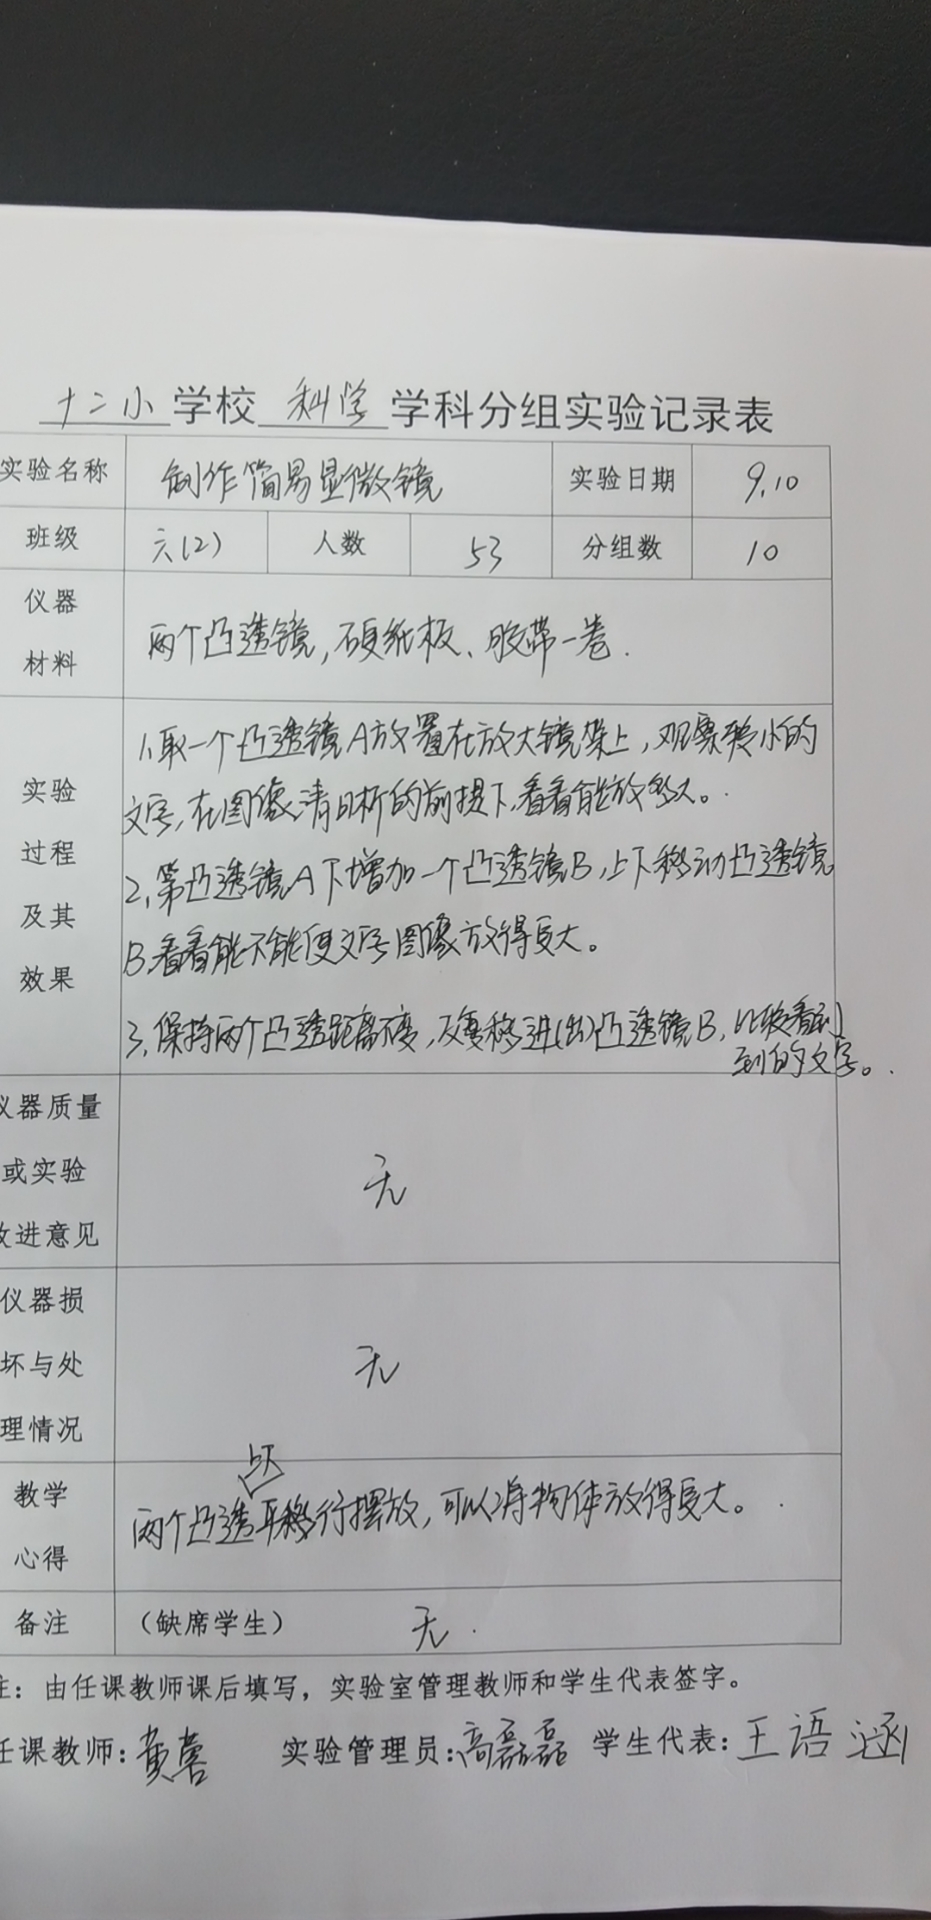 十二小学校科学学科分组实验记录表
实验名称 制作简易显微镜 实验日期 9.10
班级 六(2) 人数 53 分组数 10
仪器
材料
两个凸透镜,硬纸板、胶带一卷.
实验
过程
及其
效果
1.取一个凸透镜A放置在放大镜架上,观察较小的
文字,在图像清晰的前提下,看看能放多大。
2.第凸透镜A下增加一个凸透镜B,上下移动凸透镜
B.看看能不能使文字图像放得更大。
3.保持两个凸透距离不变,反复移进(出)凸透镜B,比较看到
到的文字。.
仪器质量
或实验
改进意见
无
仪器损
坏与处
理情况
无
教学
心得
上下
两个凸透 移行摆放,可以得物体放得更大。
备注 (缺席学生) 无.
注:由任课教师课后填写,实验室管理教师和学生代表签字。
任课教师: 黄 实验管理员:高磊磊 学生代表:王语涵